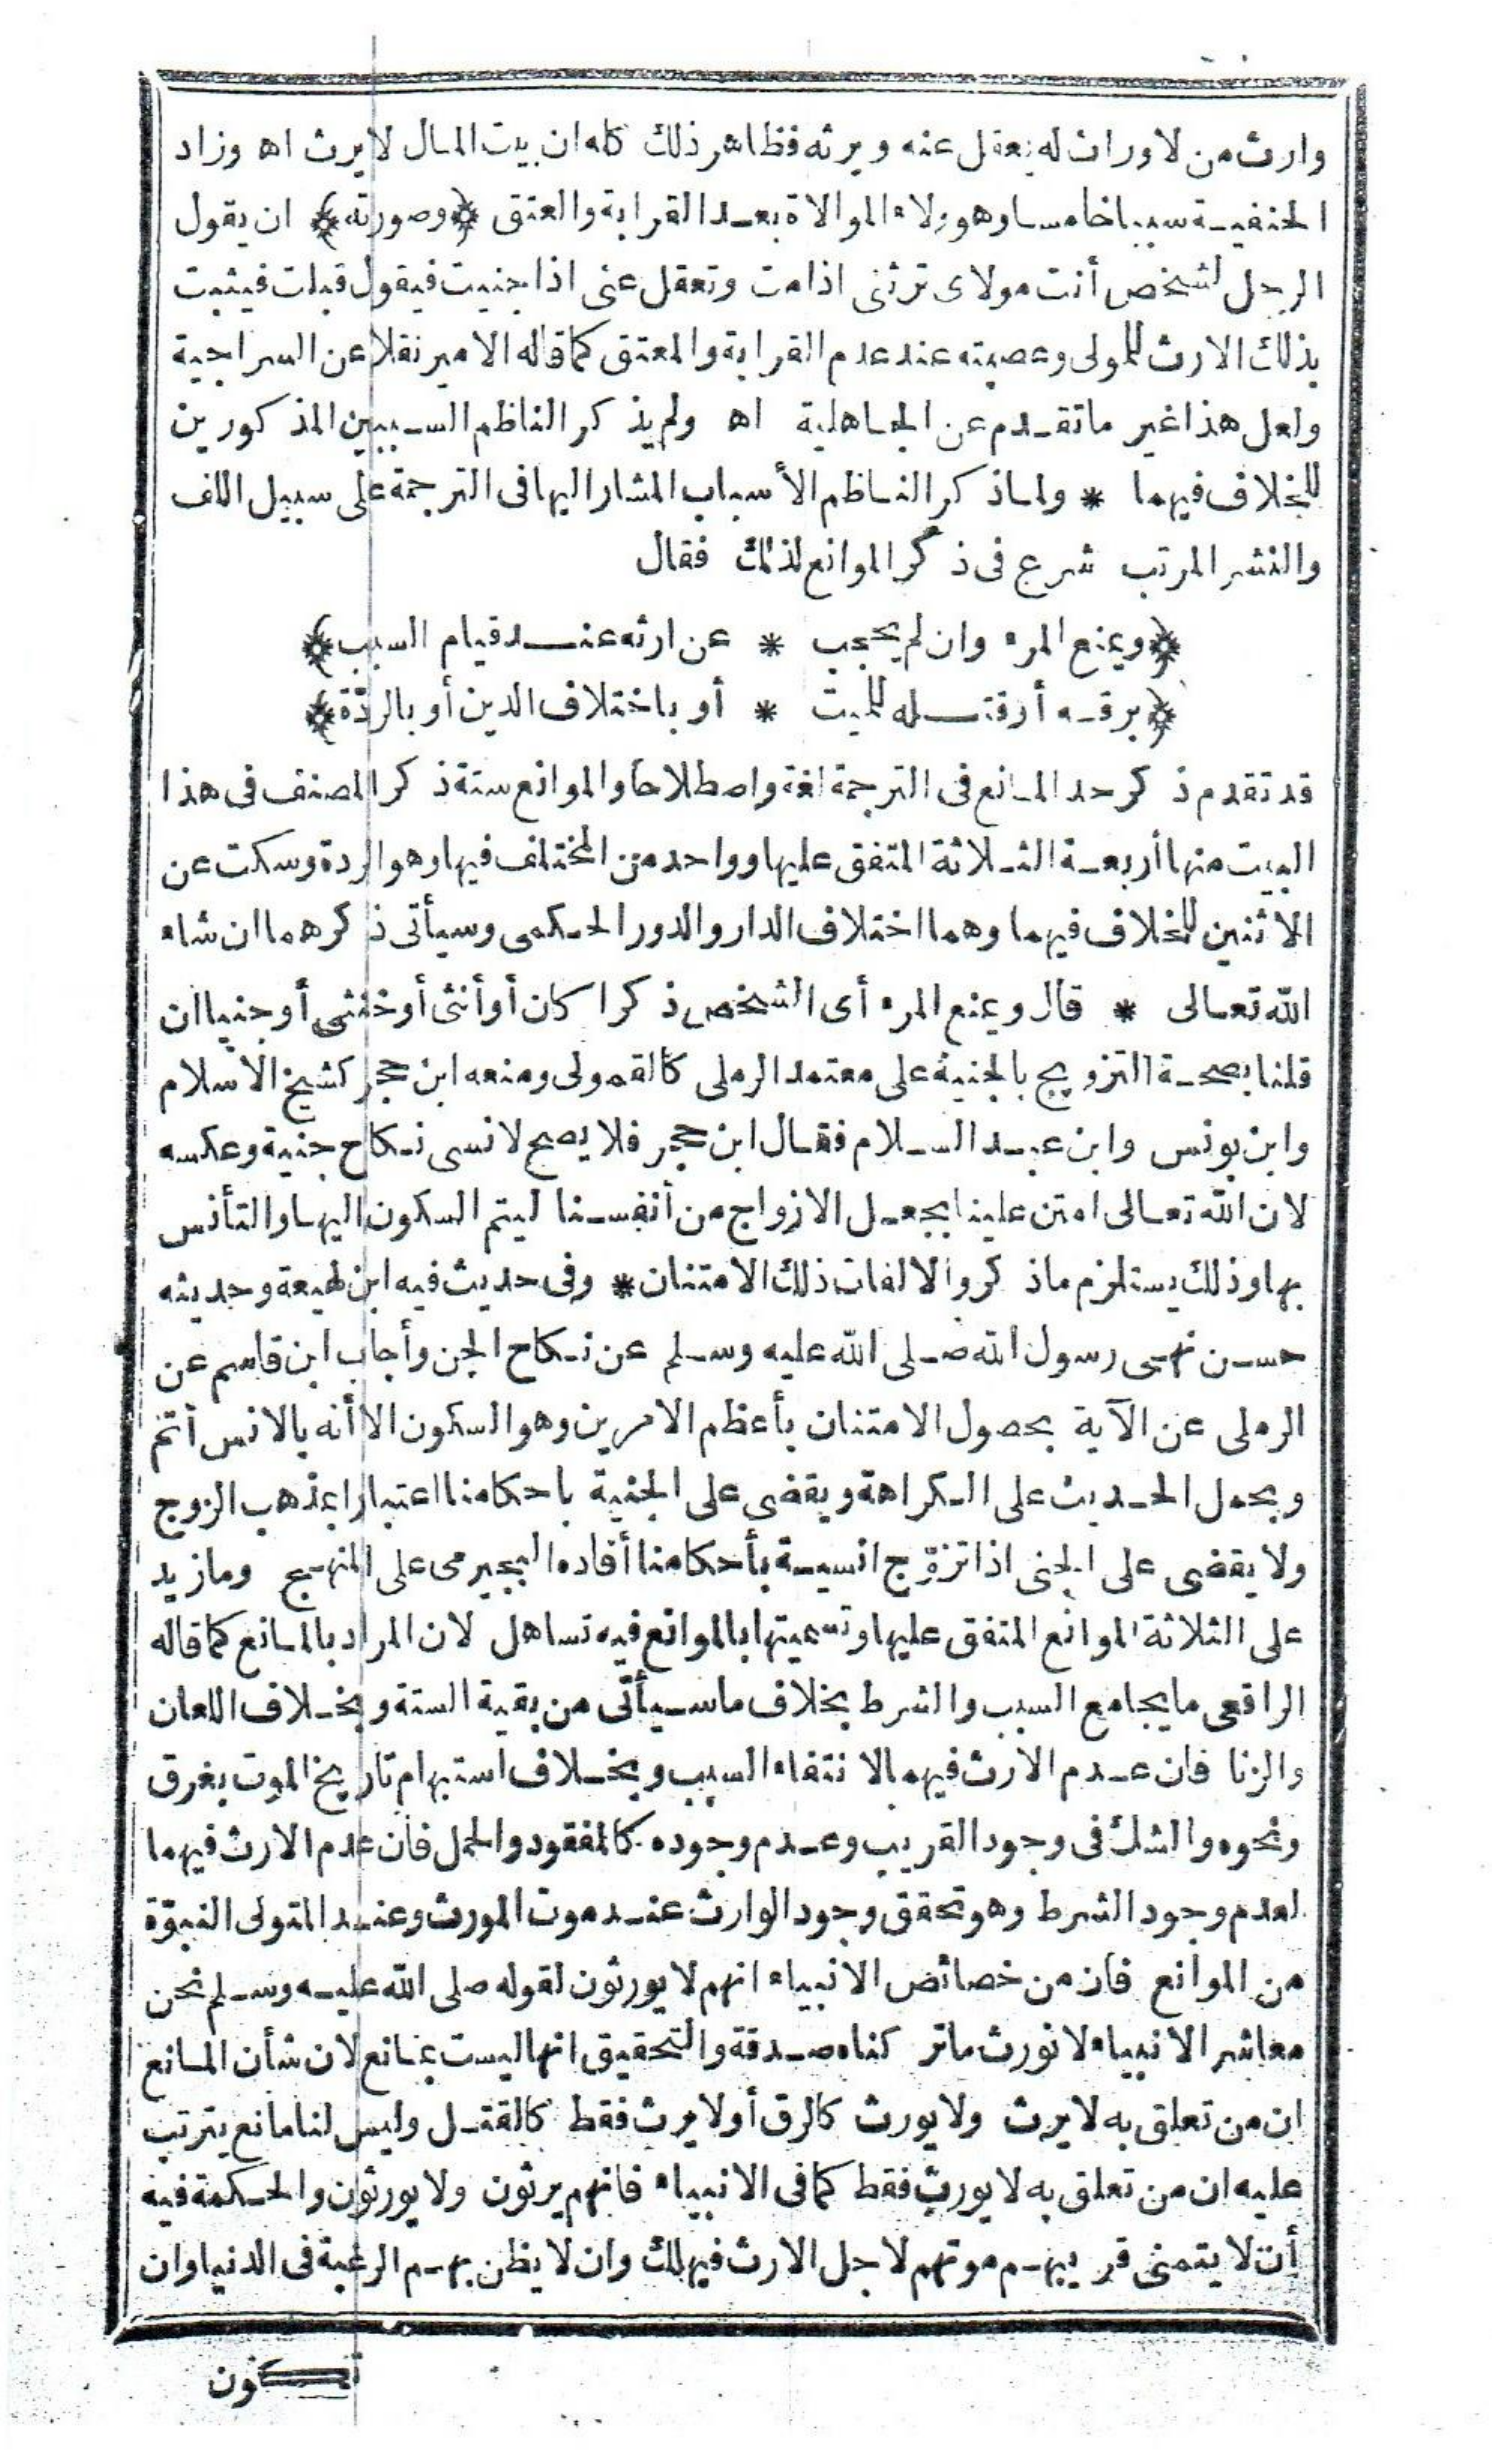 وارث من لا وارث له يعقل عنه ويرثه فظاهر ذلك كله ان بيت المال لا يرث اه وزاد
الحنفية سببا خامسا وهو ولاء الموالاة بعد القرابة والعتق ﴿وصورته﴾ ان يقول
الرجل لشخص أنت مولاى ترثنى اذا مت وتعقل عنى اذا جنيت فيقول قبلت فيثبت
بذلك الارث للمولى وعصبته عند عدم القرابة والمعتق كما قاله الامير نقلا عن السراجية
ولعل هذا غير ما تقدم عن الجاهلية اه ولم يذكر الناظم السببين المذكورين
للخلاف فيهما * ولما ذكر الناظم الأسباب المشار اليها فى الترجمة على سبيل اللف
والنشر المرتب شرع فى ذكر الموانع لذلك فقال
﴿ويمنع المرء وان لم يحجب * عن ارثه عند قيام السبب﴾
﴿برقه أو قتله للميت * أو باختلاف الدين أو بالردّة﴾
قد تقدم ذكر حد المانع فى الترجمة لغة واصطلاحا والموانع ستة ذكر المصنف فى هذا
البيت منها أربعة الثلاثة المتفق عليها وواحد من المختلف فيها وهو الردة وسكت عن
الاثنين للخلاف فيهما وهما اختلاف الدار والدور الحكمى وسيأتى ذكرهما ان شاء
الله تعالى * قال ويمنع المرء أى الشخص ذكرا كان أو أنثى أو خنثى أو جنيا ان
قلنا بصحة التزويج بالجنية على معتمد الرملى كالقمولى ومنعه ابن حجر كشيخ الاسلام
وابن يونس وابن عبد السلام فقال ابن حجر فلا يصح لانسى نكاح جنية وعكسه
لان الله تعالى امتن علينا بجعل الازواج من أنفسنا ليتم السكون اليها والتأنس
بها وذلك يستلزم ما ذكر والا لفات ذلك الامتنان * وفى حديث فيه ابن لهيعة وحديثه
حسن نهى رسول الله صلى الله عليه وسلم عن نكاح الجن وأجاب ابن قاسم عن
الرملى عن الآية بحصول الامتنان بأعظم الامرين وهو السكون الا أنه بالانس أتم
ويحمل الحديث على الكراهة ويقضى على الجنية باحكامنا اعتبارا بمذهب الزوج
ولا يقضى على الجنى اذا تزوّج انسية بأحكامنا أفاده البجيرمى على المنهج وما زيد
على الثلاثة الموانع المتفق عليها وتسميتها بالموانع فيه تساهل لان المراد بالمانع كما قاله
الرافعى ما يجامع السبب والشرط بخلاف ما سيأتى من بقية الستة وبخلاف اللعان
والزنا فان عدم الارث فيهما لانتفاء السبب وبخلاف استبهام تاريخ الموت بغرق
ونحوه والشك فى وجود القريب وعدم وجوده كالمفقود والحمل فان عدم الارث فيهما
لعدم وجود الشرط وهو تحقق وجود الوارث عند موت المورث وعند المتولى النبوّة
من الموانع فان من خصائص الانبياء انهم لا يورثون لقوله صلى الله عليه وسلم نحن
معاشر الانبياء لا نورث ما تركناه صدقة والتحقيق انها ليست بمانع لان شأن المانع
ان من تعلق به لا يرث ولا يورث كالرق أو لا يرث فقط كالقتل وليس لنا مانع يترتب
عليه ان من تعلق به لا يورث فقط كما فى الانبياء فانهم يرثون ولا يورثون والحكمة فيه
أن لا يتمنى قريبهم موتهم لاجل الارث فيهلك وان لا يظن بهم الرغبة فى الدنيا وان
تكون